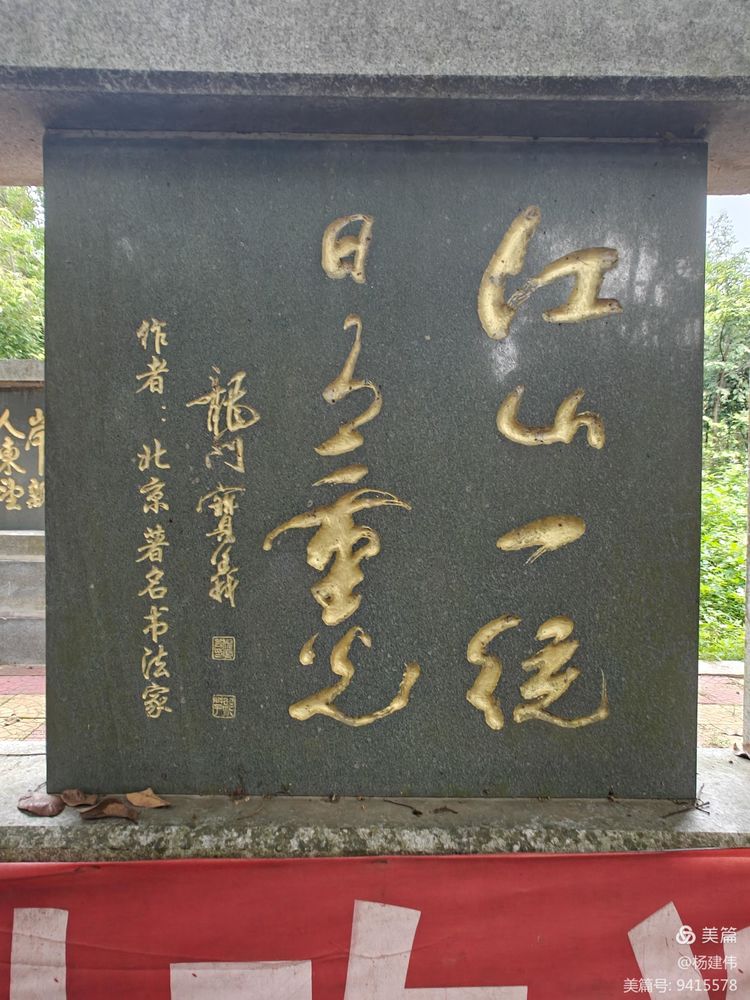 江山一统
日月重光
龍门寶義
作者：北京著名书法家
岸
人東
美篇
@杨建伟
美篇号: 9415578